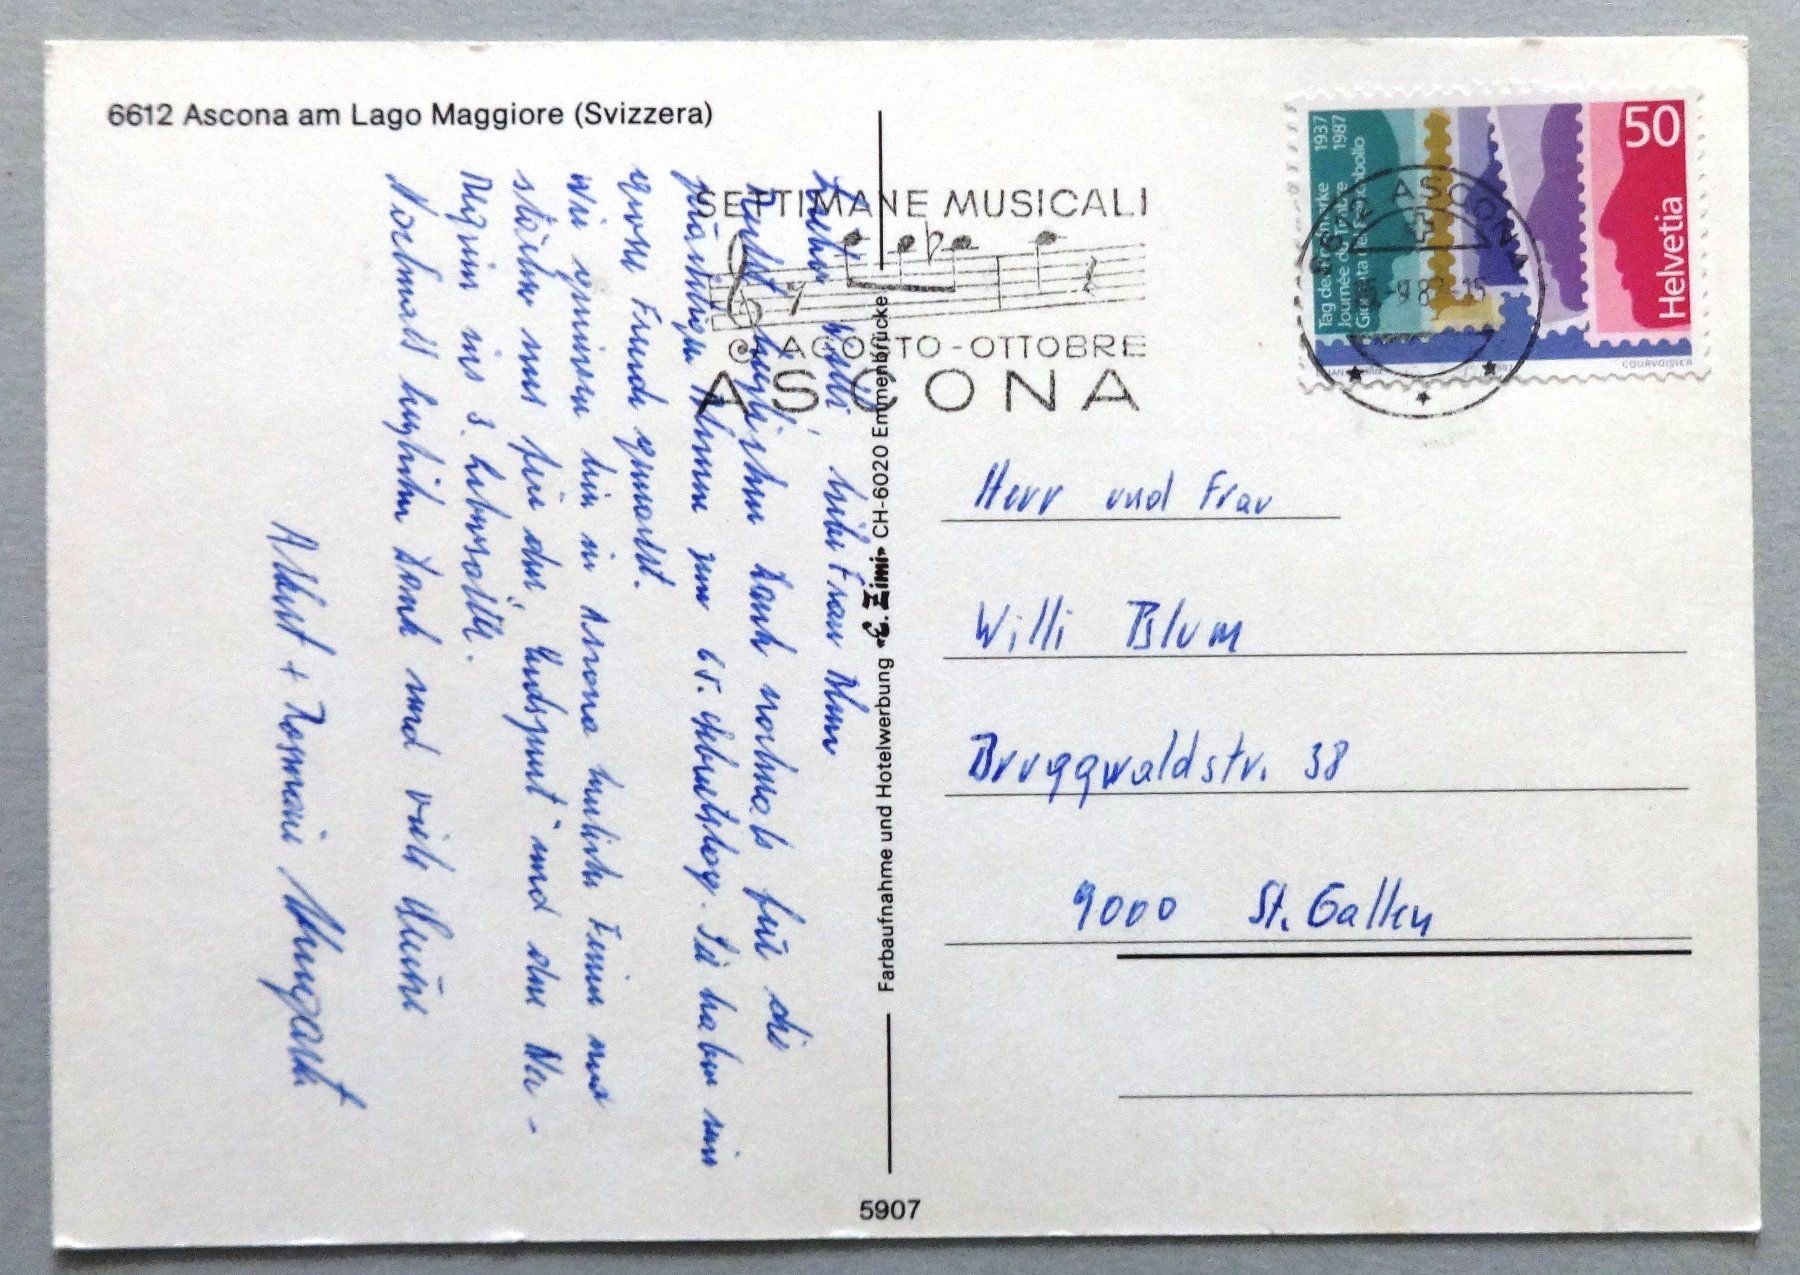 6612 Ascona am Lago Maggiore (Svizzera)
SETTIMANE MUSICALI
AGOSTO-OTTOBRE
ASCONA
Tag der Briefmarke 1937
Journée du Timbre 1987
Giornata del francobollo
50
Helvetia
COURVOISIER
ASCONA
Lieber Willi, liebe Frau Blum
Recht herzlichen Dank nochmals für die
prächtigen Blumen zum 65. Geburtstag. Sie haben mir
grosse Freude gemacht.
Wir geniessen hier in Ascona herrliche Ferien und
stärken uns für den Endspurt und den
Nochmals herzlichen Dank und viele Grüsse
Albert + Rosmarie
Farbaufnahme und Hotelwerbung «E. Zimi» CH-6020 Emmenbrücke
Herr und Frau
Willi Blum
Bruggwaldstr. 38
9000 St. Gallen
5907